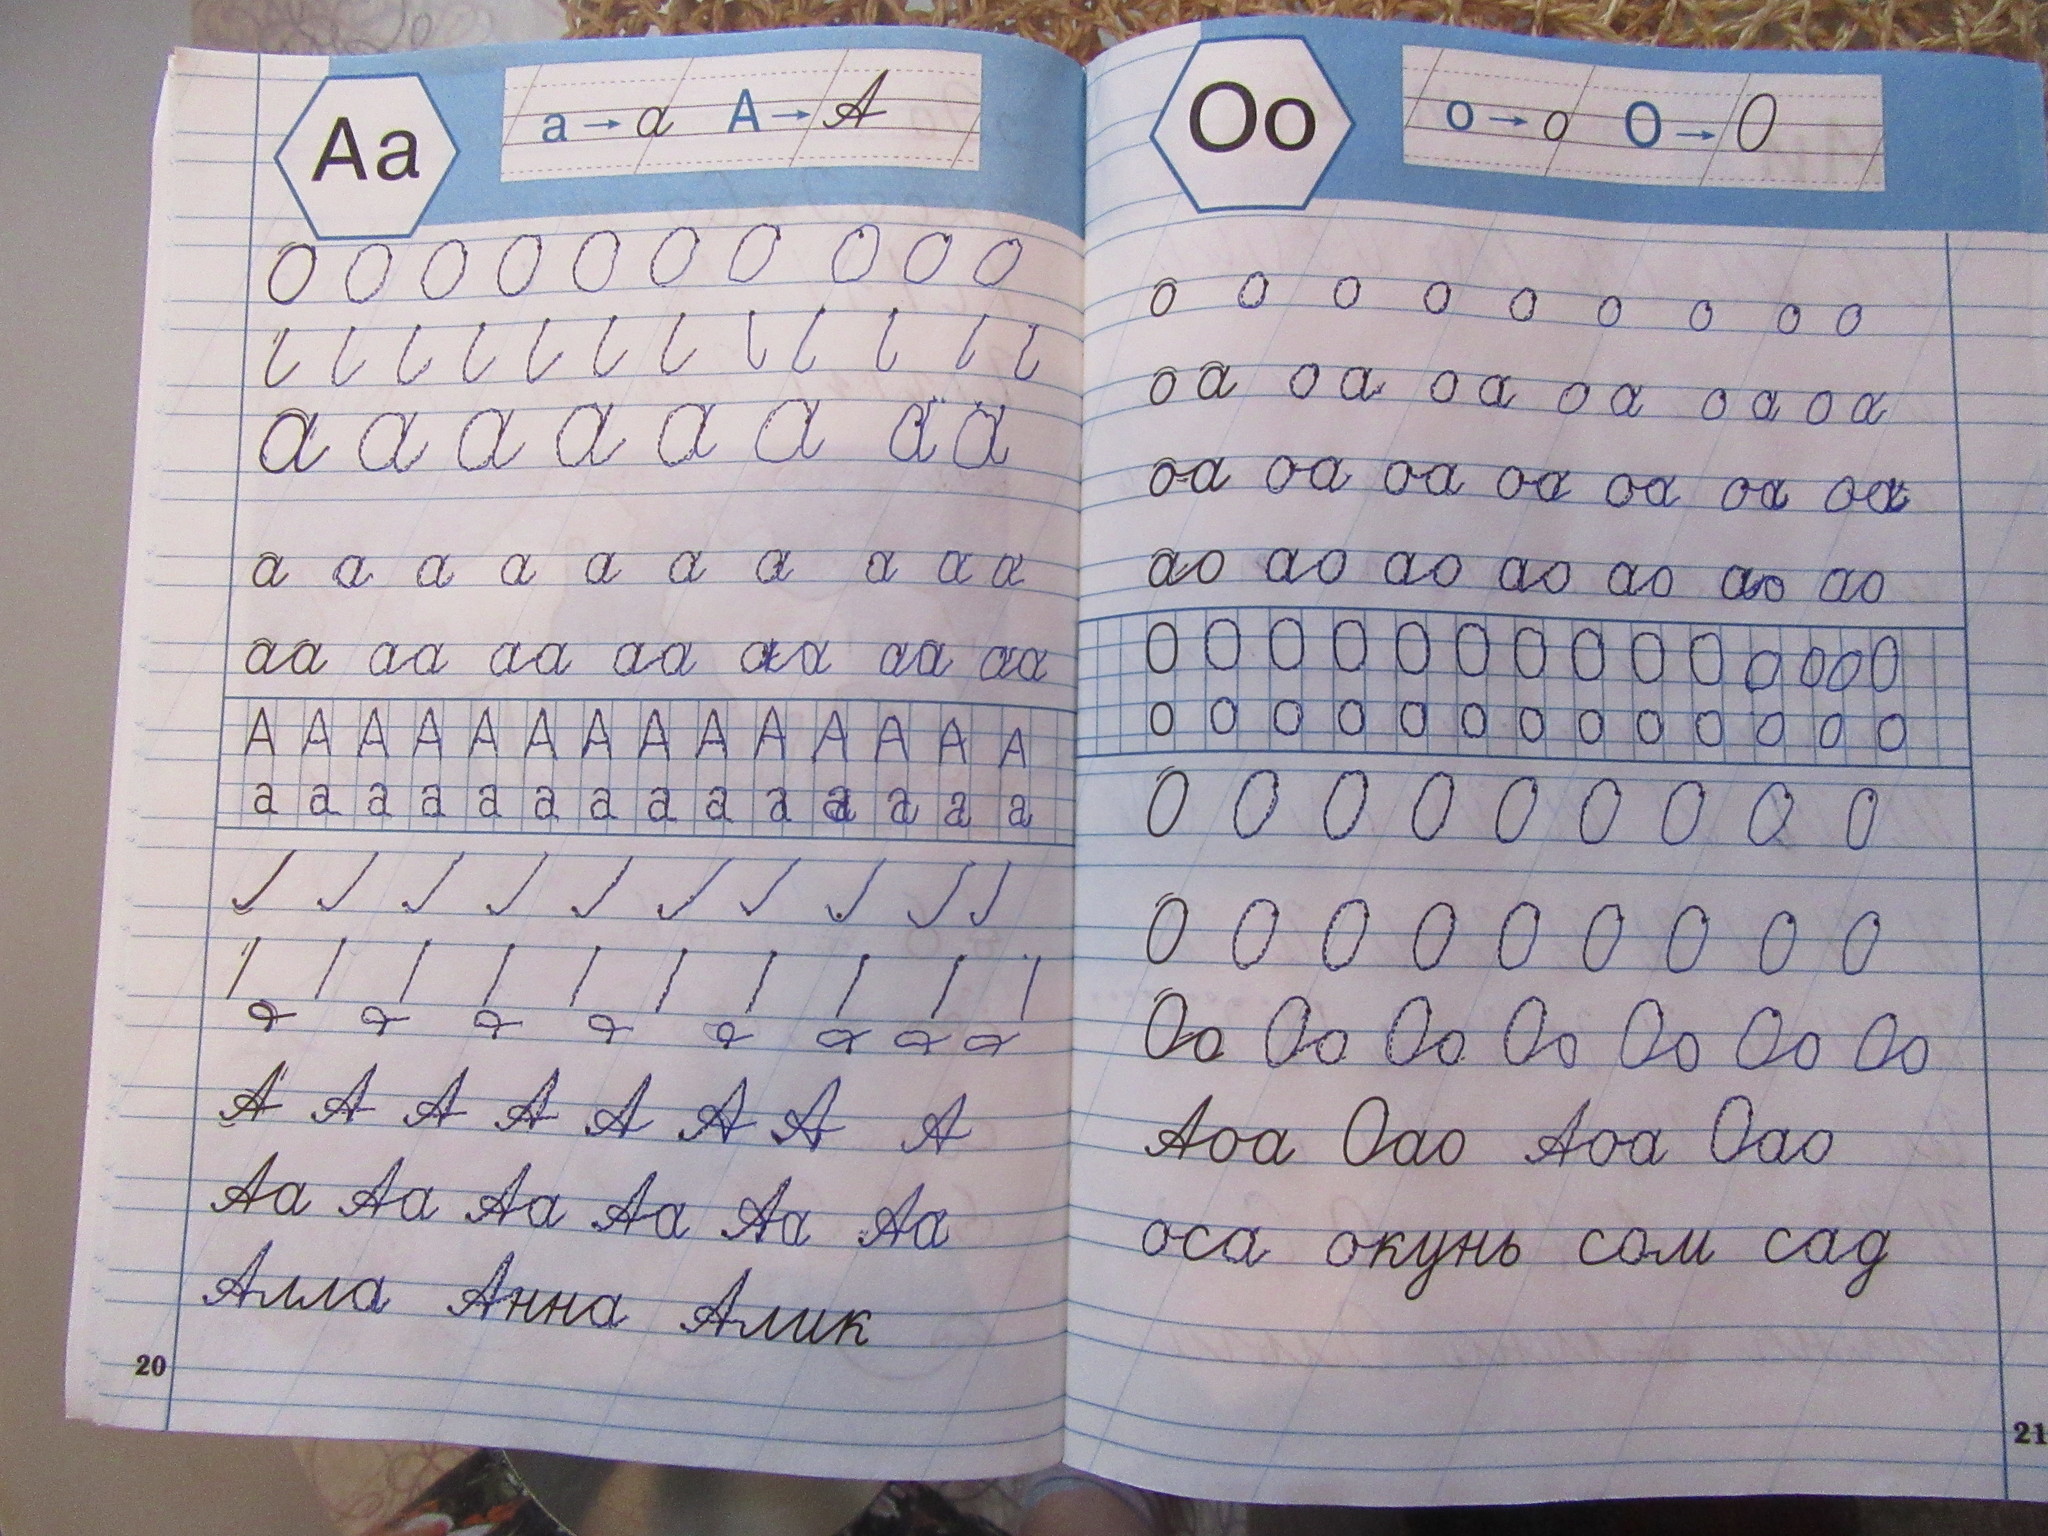 Аа а → а А → А
О О О О О О О О О О
а а а а а а а а
а а а а а а а а а а
аа аа аа аа аа аа аа
А А А А А А А А А А А А А А
а а а а а а а а а а а а а а
А А А А А А А А
Аа Аа Аа Аа Аа Аа
Алла Анна Алик
20
Оо о → о О → О
о о о о о о о о о
о а о а о а о а о а о а
оа оа оа оа оа оа оа
ао ао ао ао ао ао ао
О О О О О О О О О О О О О О
о о о о о о о о о о о о о
О О О О О О О О О
О О О О О О О О О
Оо Оо Оо Оо Оо Оо Оо
Аоа Оао Аоа Оао
оса окунь сом сад
21